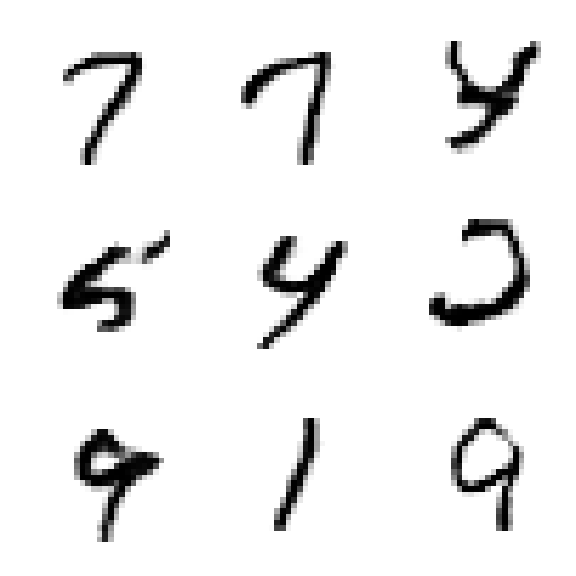 7 7 4
5 4
9 1 9